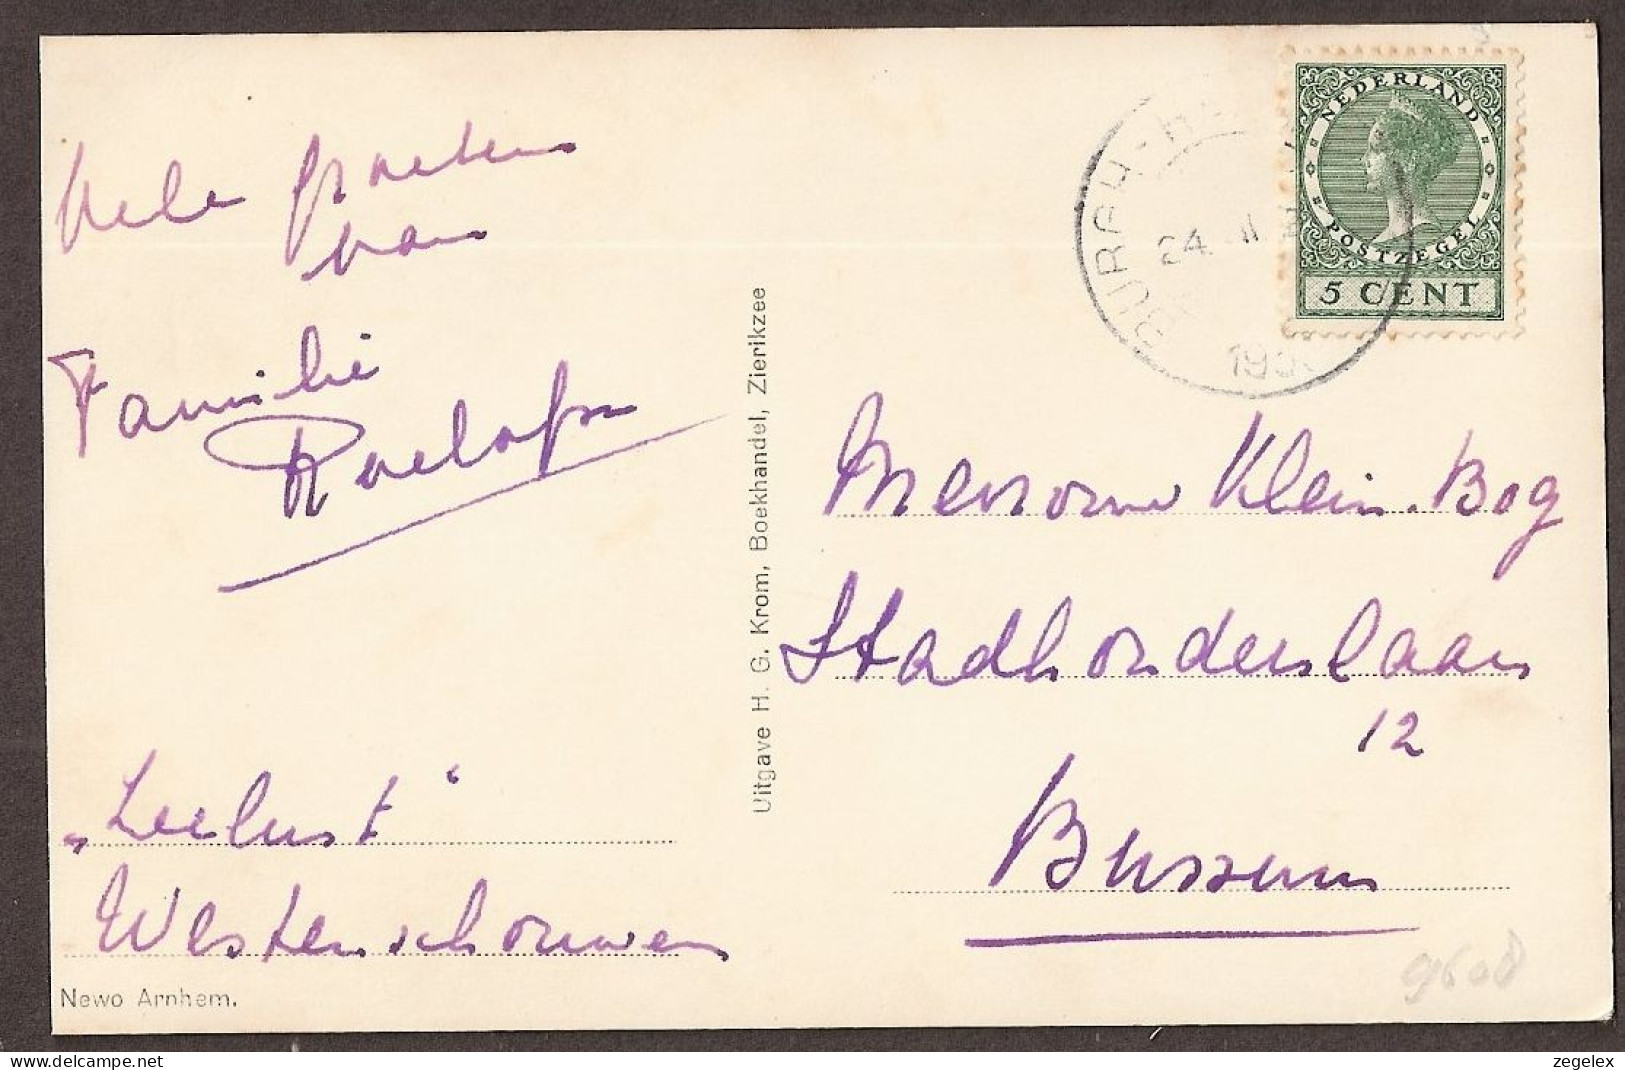 Vele groeten
van
Familie
Roelofsen
„Zeelust“
Westenschouwen
Newo Arnhem.
Uitgave H. G. Krom, Boekhandel, Zierikzee
NEDERLAND
POSTZEGEL
5 CENT
BURGH-
24
193
Mevrouw Klein-Bog
Stadhouderslaan
12
Bussum
9608
zegelex
delcampe.net